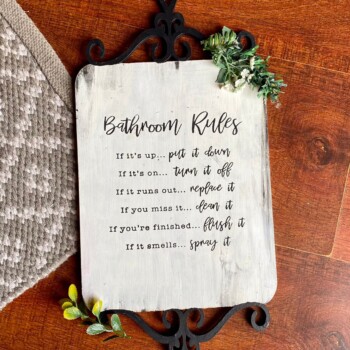 Bathroom Rules
If it's up... put it down
If it's on... turn it off
If it runs out... replace it
If you miss it... clean it
If you're finished... flush it
If it smells... spray it